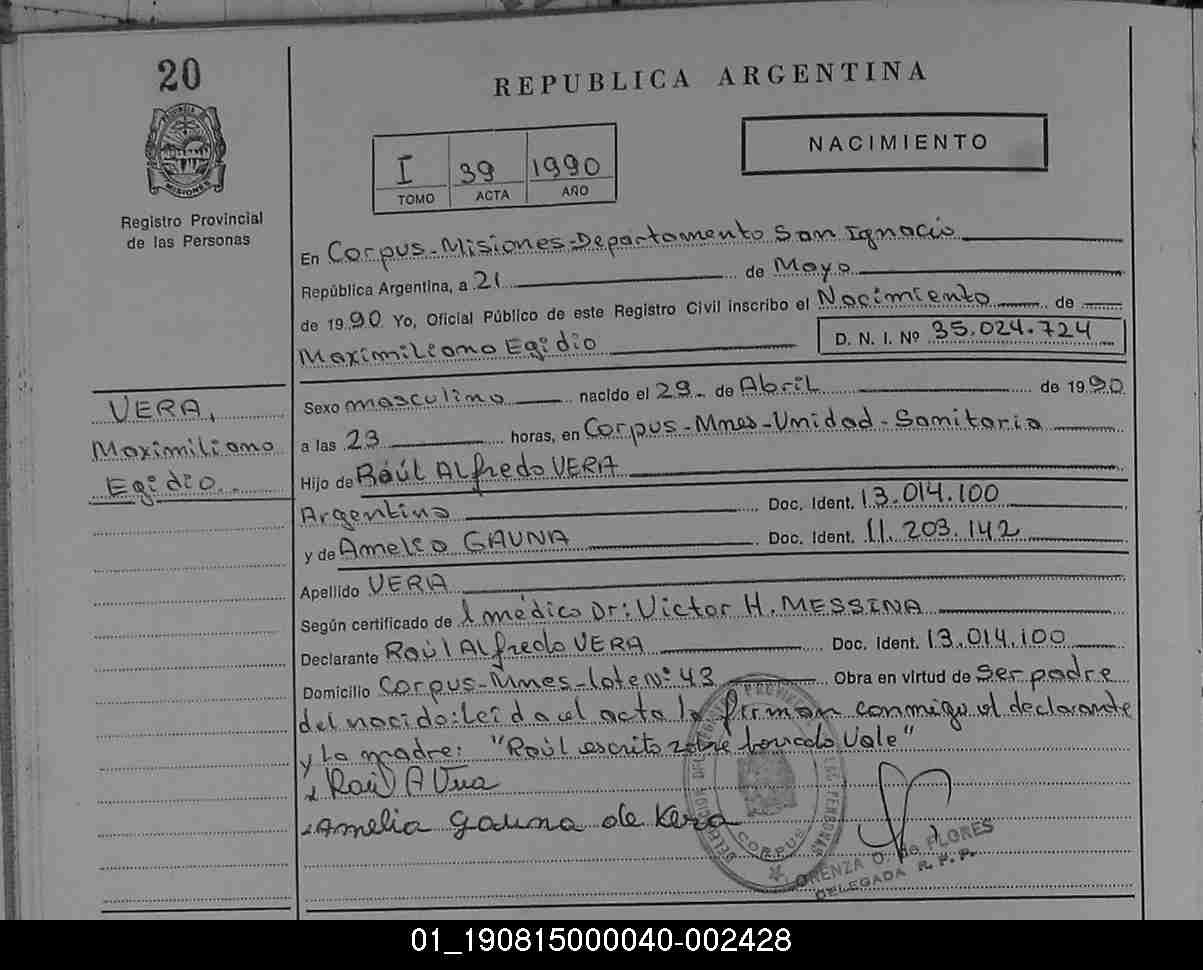 20
REPUBLICA ARGENTINA
NACIMIENTO
I 39 1990
TOMO ACTA AÑO
MISIONES
Registro Provincial
de las Personas
En Corpus-Misiones-Departamento San Ignacio
República Argentina, a 21 de Mayo
de 1990 Yo, Oficial Público de este Registro Civil inscribo el Nacimiento de
Maximiliano Egidio D. N. I. Nº 35.024.724
VERA,
Maximiliano
Egidio..
Sexo masculino nacido el 29 de Abril de 1990
a las 23 horas, en Corpus-Mnes-Unidad-Sanitaria
Hijo de Raúl Alfredo VERA
Argentino Doc. Ident. 13.014.100
y de Amelia GAUNA Doc. Ident. 11.203.142
Apellido VERA
Según certificado de l médico Dr: Victor H. MESSINA
Declarante Raúl Alfredo VERA Doc. Ident. 13.014.100
Domicilio Corpus-Mnes-lote Nº 43 Obra en virtud de Ser padre
del nacido: Leida el acta la firman conmigo el declarante
y la madre: "Raúl escrito sobre borrado Vale"
Raúl A Vera
Amelia Gauna de Vera
CORPUS
LORENZA O. de FLORES
DELEGADA R. P. P.
01_190815000040-002428